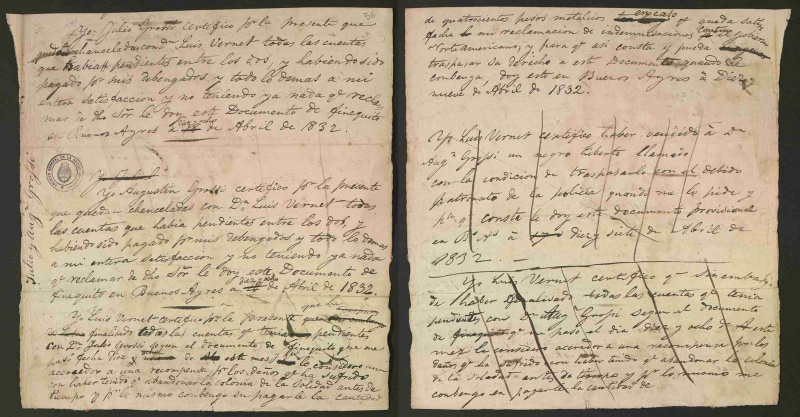 Yo Julio Grossi certifico pr la presente que
quedan chanceladas con Dn Luis Vernet todas las cuentas
que habia pendientes entre los dos, y habiendo sido
pagado por mis debengados, y todo lo demas a mi
entera satisfaccion y no teniendo ya nada qe recla-
mar de dho Sor le doy este Documento de finequito
en Buenos Ayres a diez ocho de Abril de 1832.
Yo Augustin Grossi certifico pr la presente
que quedan chanceladas con Dn Luis Vernet todas
las cuentas que habia pendientes entre los dos, y
habiendo sido pagado por mis debengados y todo lo demas
a mi entera satisfaccion y no teniendo ya nada
qe reclamar de dho Sor le doy este Documento de
finequito en Buenos Ayres a diez ocho de Abril de 1832.
Yo Luis Vernet certifico pr la presente que
finalizado todas las cuentas qe tenia pendientes
con Dn Julio Grossi segun el documento de finequito que me
pasó fecha diez y de este mes lo considero aun
acreedor a una recompensa pr los daños qe ha sufrido
con haber tenido qe abandonar la colonia de la Soledad antes de
tiempo y pr lo mismo convengo en pagarle la cantidad
Julio y Augn Grossi
de quatrocientos pesos metalicos en caso qe queda satis
fecha mi reclamacion de indemnizaciones contra el gobierno
Norte Americano, y para qe asi conste y pueda
traspasar su derecho a este Documento quando le
conbenga, doy este en Buenos Ayres a Diez y
nueve de Abril de 1832.
Yo Luis Vernet certifico haber vendido a Dn
Augn Grossi un negro liberto llamado
con la condicion de traspasarlo con el debido
patronato de la policia quando me lo pide y
pa qe conste le doy este documento provisional
en Bs As a diez y siete de Abril de
1832. —
Yo Luis Vernet certifico qe sin embargo
de haber finalisado todas las cuentas qe tenia
pendiente con Dn Augn Grossi segun el documento
de finequito qe me pasó el dia diez y ocho de este
mes lo considero acreedor a una recompensa por los
daños qe ha sufrido con haber tenido qe abandonar la colonia
de la Soledad antes de tiempo y pr lo mismo me
convengo en pagarle la cantidad de